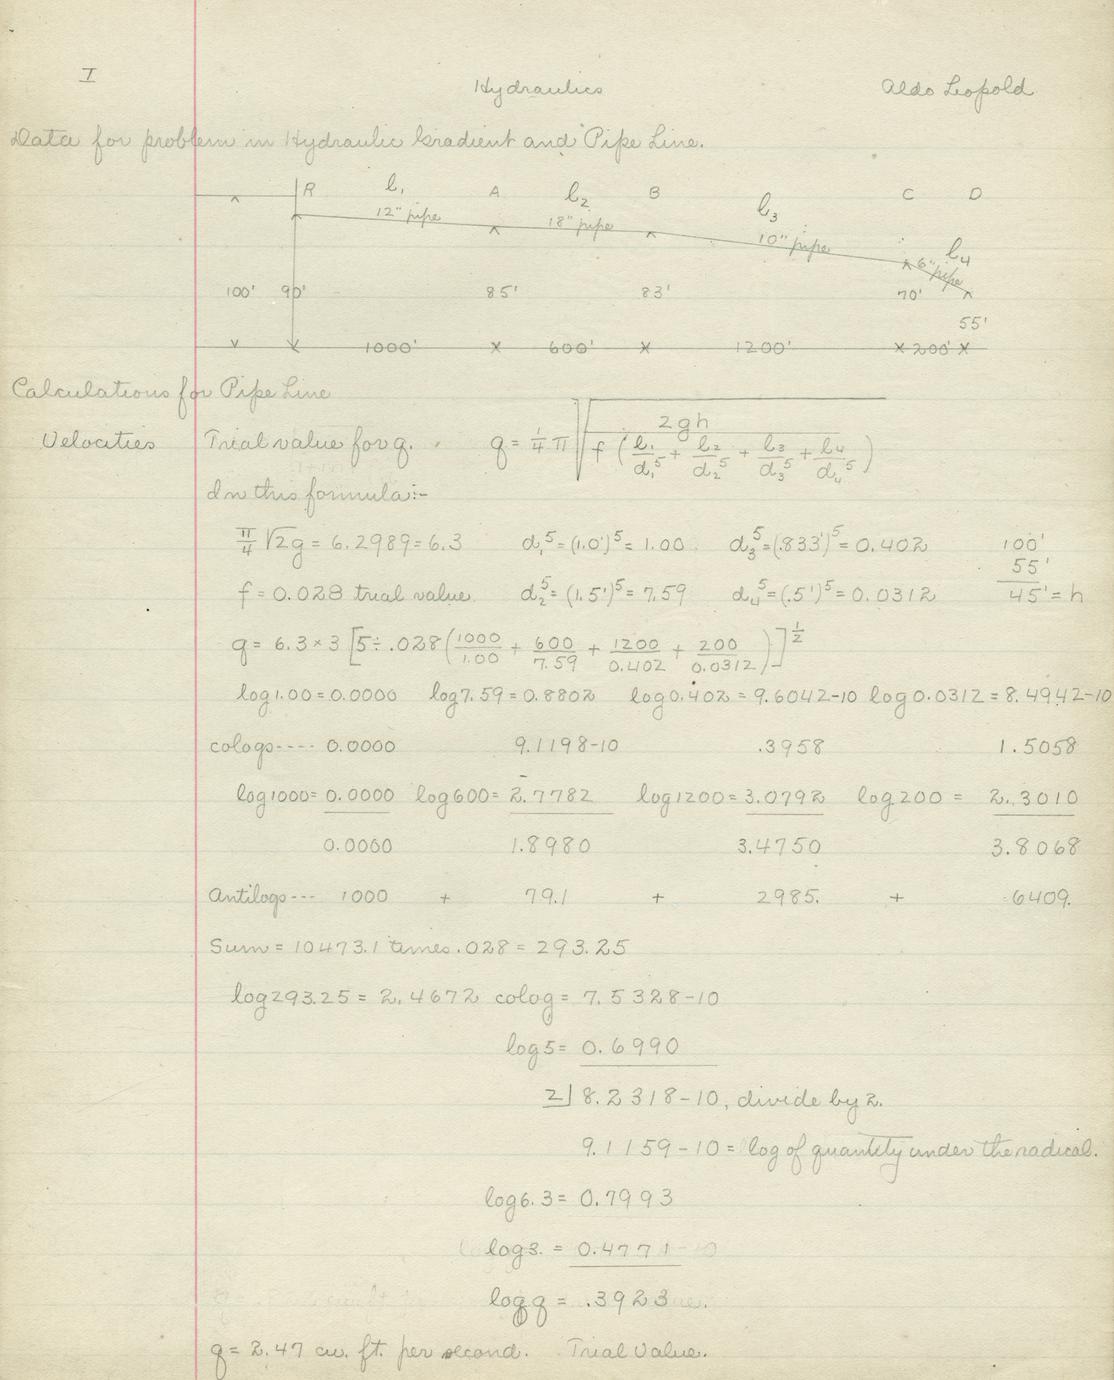 I Hydraulics Aldo Leopold
Data for problem in Hydraulic Gradient and Pipe Line.
R l₁ A l₂ B l₃ C D
12" pipe 18" pipe 10" pipe 6" pipe l₄
100' 90' 85' 83' 70'
55'
1000' 600' 1200' 200'
Calculations for Pipe Line
Velocities Trial value for q. q = ¼ π √(2gh / f (l₁/d₁⁵ + l₂/d₂⁵ + l₃/d₃⁵ + l₄/d₄⁵))
In this formula:-
π/4 √2g = 6.2989 = 6.3 d₁⁵ = (1.0')⁵ = 1.00 d₃⁵ = (.833')⁵ = 0.402 100'
55'
f = 0.028 trial value d₂⁵ = (1.5')⁵ = 7.59 d₄⁵ = (.5')⁵ = 0.0312 45' = h
q = 6.3 × 3 [5 ÷ .028 (1000/1.00 + 600/7.59 + 1200/0.402 + 200/0.0312)]^½
log 1.00 = 0.0000 log 7.59 = 0.8802 log 0.402 = 9.6042-10 log 0.0312 = 8.4942-10
cologs---- 0.0000 9.1198-10 .3958 1.5058
log 1000 = 0.0000 log 600 = 2.7782 log 1200 = 3.0792 log 200 = 2.3010
0.0000 1.8980 3.4750 3.8068
Antilogs--- 1000 + 79.1 + 2985. + 6409.
Sum = 10473.1 times .028 = 293.25
log 293.25 = 2.4672 colog = 7.5328-10
log 5 = 0.6990
2| 8.2318-10, divide by 2.
9.1159-10 = log of quantity under the radical.
log 6.3 = 0.7993
log 3. = 0.4771
log q = .3923
q = 2.47 cu. ft. per second. Trial Value.